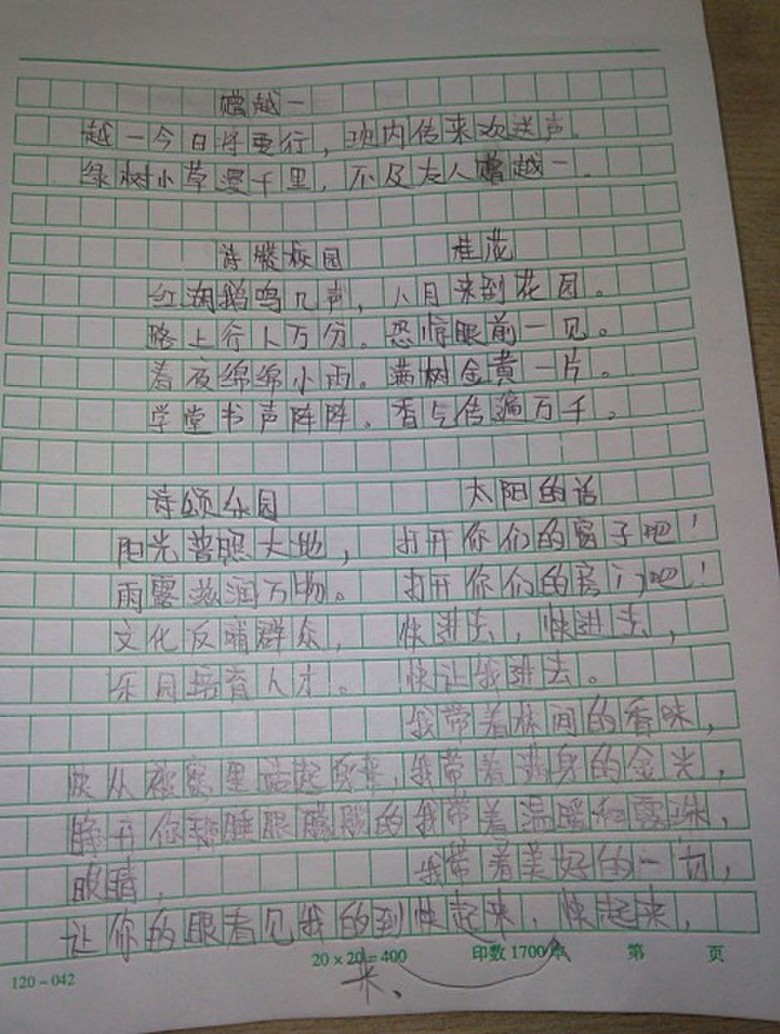 赠越一
越一今日将要行，班内传来欢送声。
绿树小草漫千里，不及友人赠越一。
诗 校园 桂花
红湖鹅鸣几声，八月来到花园。
路上行人万分。恐惊眼前一见。
着夜绵绵小雨。满树金黄一片。
学堂书声阵阵。香气传遍万千。
诗颂乐园 太阳的话
阳光普照大地，打开你们的窗子吧！
雨露滋润万物。打开你们的房门吧！
文化反哺群众，快进去，快进去，
乐园培育人才。快让我进去。
我带着林间的香味，
快从被窝里站起来，我带着满身的金光，
睁开你那睡眼朦胧的我带着温暖和露珠，
眼睛，我带着美好的一切，
让你的眼看见我的到快起来，快起来，
来、
20×20=400 印数1700本 第 页
120-042